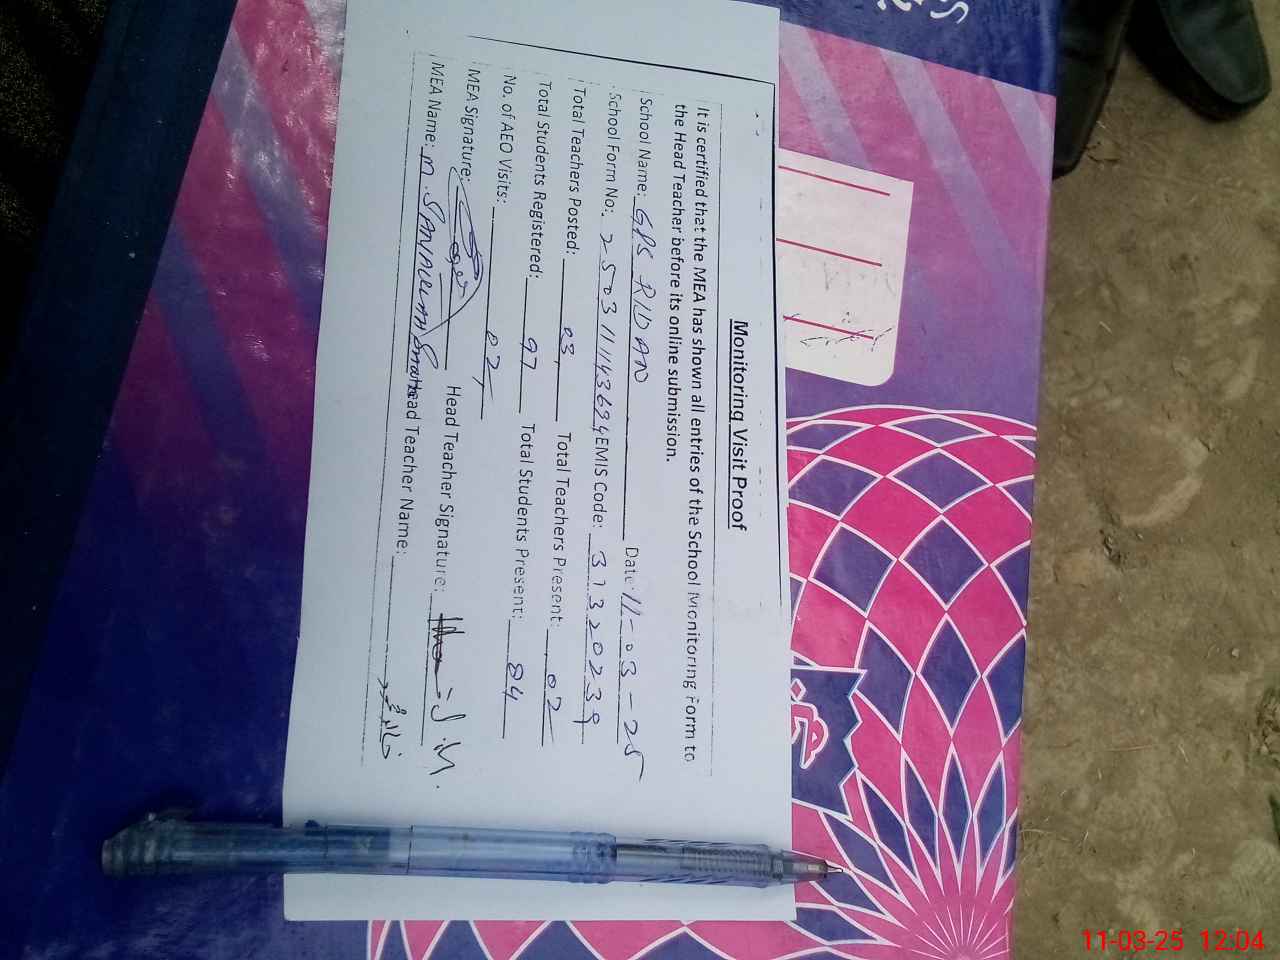 Monitoring Visit Proof
It is certified that the MEA has shown all entries of the School Monitoring Form to
the Head Teacher before its online submission.
School Name: GPS RIDAN Date: 11-03-25
School Form No: 2503111143694 EMIS Code: 31320239
Total Teachers Posted: 03 Total Teachers Present: 02
Total Students Registered: 97 Total Students Present: 84
No. of AEO Visits: 02
MEA Signature: Head Teacher Signature:
MEA Name: M. Head Teacher Name:
11-03-25 12:04